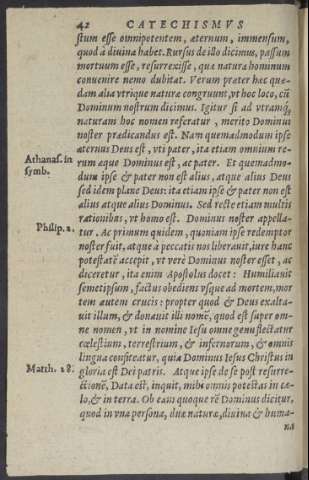 42 CATECHISMVS
stum esse omnipotentem, æternum, immensum,
quod à diuina habet. Rursus de illo dicimus, passum
mortuum esse, resurrexisse, quæ natura hominum
conuenire nemo dubitat. Verum præter hæc quæ-
dam alia vtrique naturæ congruunt, vt hoc loco, cũ
Dominum nostrum dicimus. Igitur si ad vtramq́;
naturam hoc nomen referatur, merito Dominus
noster prædicandus est. Nam quemadmodum ipse
Athanas. in
symb.
æternus Deus est, vti pater, ita etiam omnium re-
rum æque Dominus est, ac pater. Et quemadmo-
dum ipse & pater non est alius, atque alius Deus
sed idem plane Deus: ita etiam ipse & pater non est
alius atque alius Dominus. Sed recte etiam multis
rationibus, vt homo est. Dominus noster appella-
Philip. 2.
tur. Ac primum quidem, quoniam ipse redemptor
noster fuit, atque à peccatis nos liberauit, iure hanc
potestatẽ accepit, vt verè Dominus noster esset, ac
diceretur, ita enim Apostolus docet: Humiliauit
semetipsum, factus obediens vsque ad mortem, mor
tem autem crucis: propter quod & Deus exalta-
uit illum, & donauit illi nomẽ, quod est super om-
ne nomen, vt in nomine Iesu omne genu flectatur
cælestium, terrestrium, & infernorum, & omnis
lingua confiteatur, quia Dominus Iesus Christus in
Matth. 28.
gloria est Dei patris. Atque ipse de se post resurre-
ctionẽ, Data est, inquit, mihi omnis potestas in cæ-
lo, & in terra. Ob eam quoque rẽ Dominus dicitur,
quod in vna persona, duæ naturæ, diuina & huma-
na